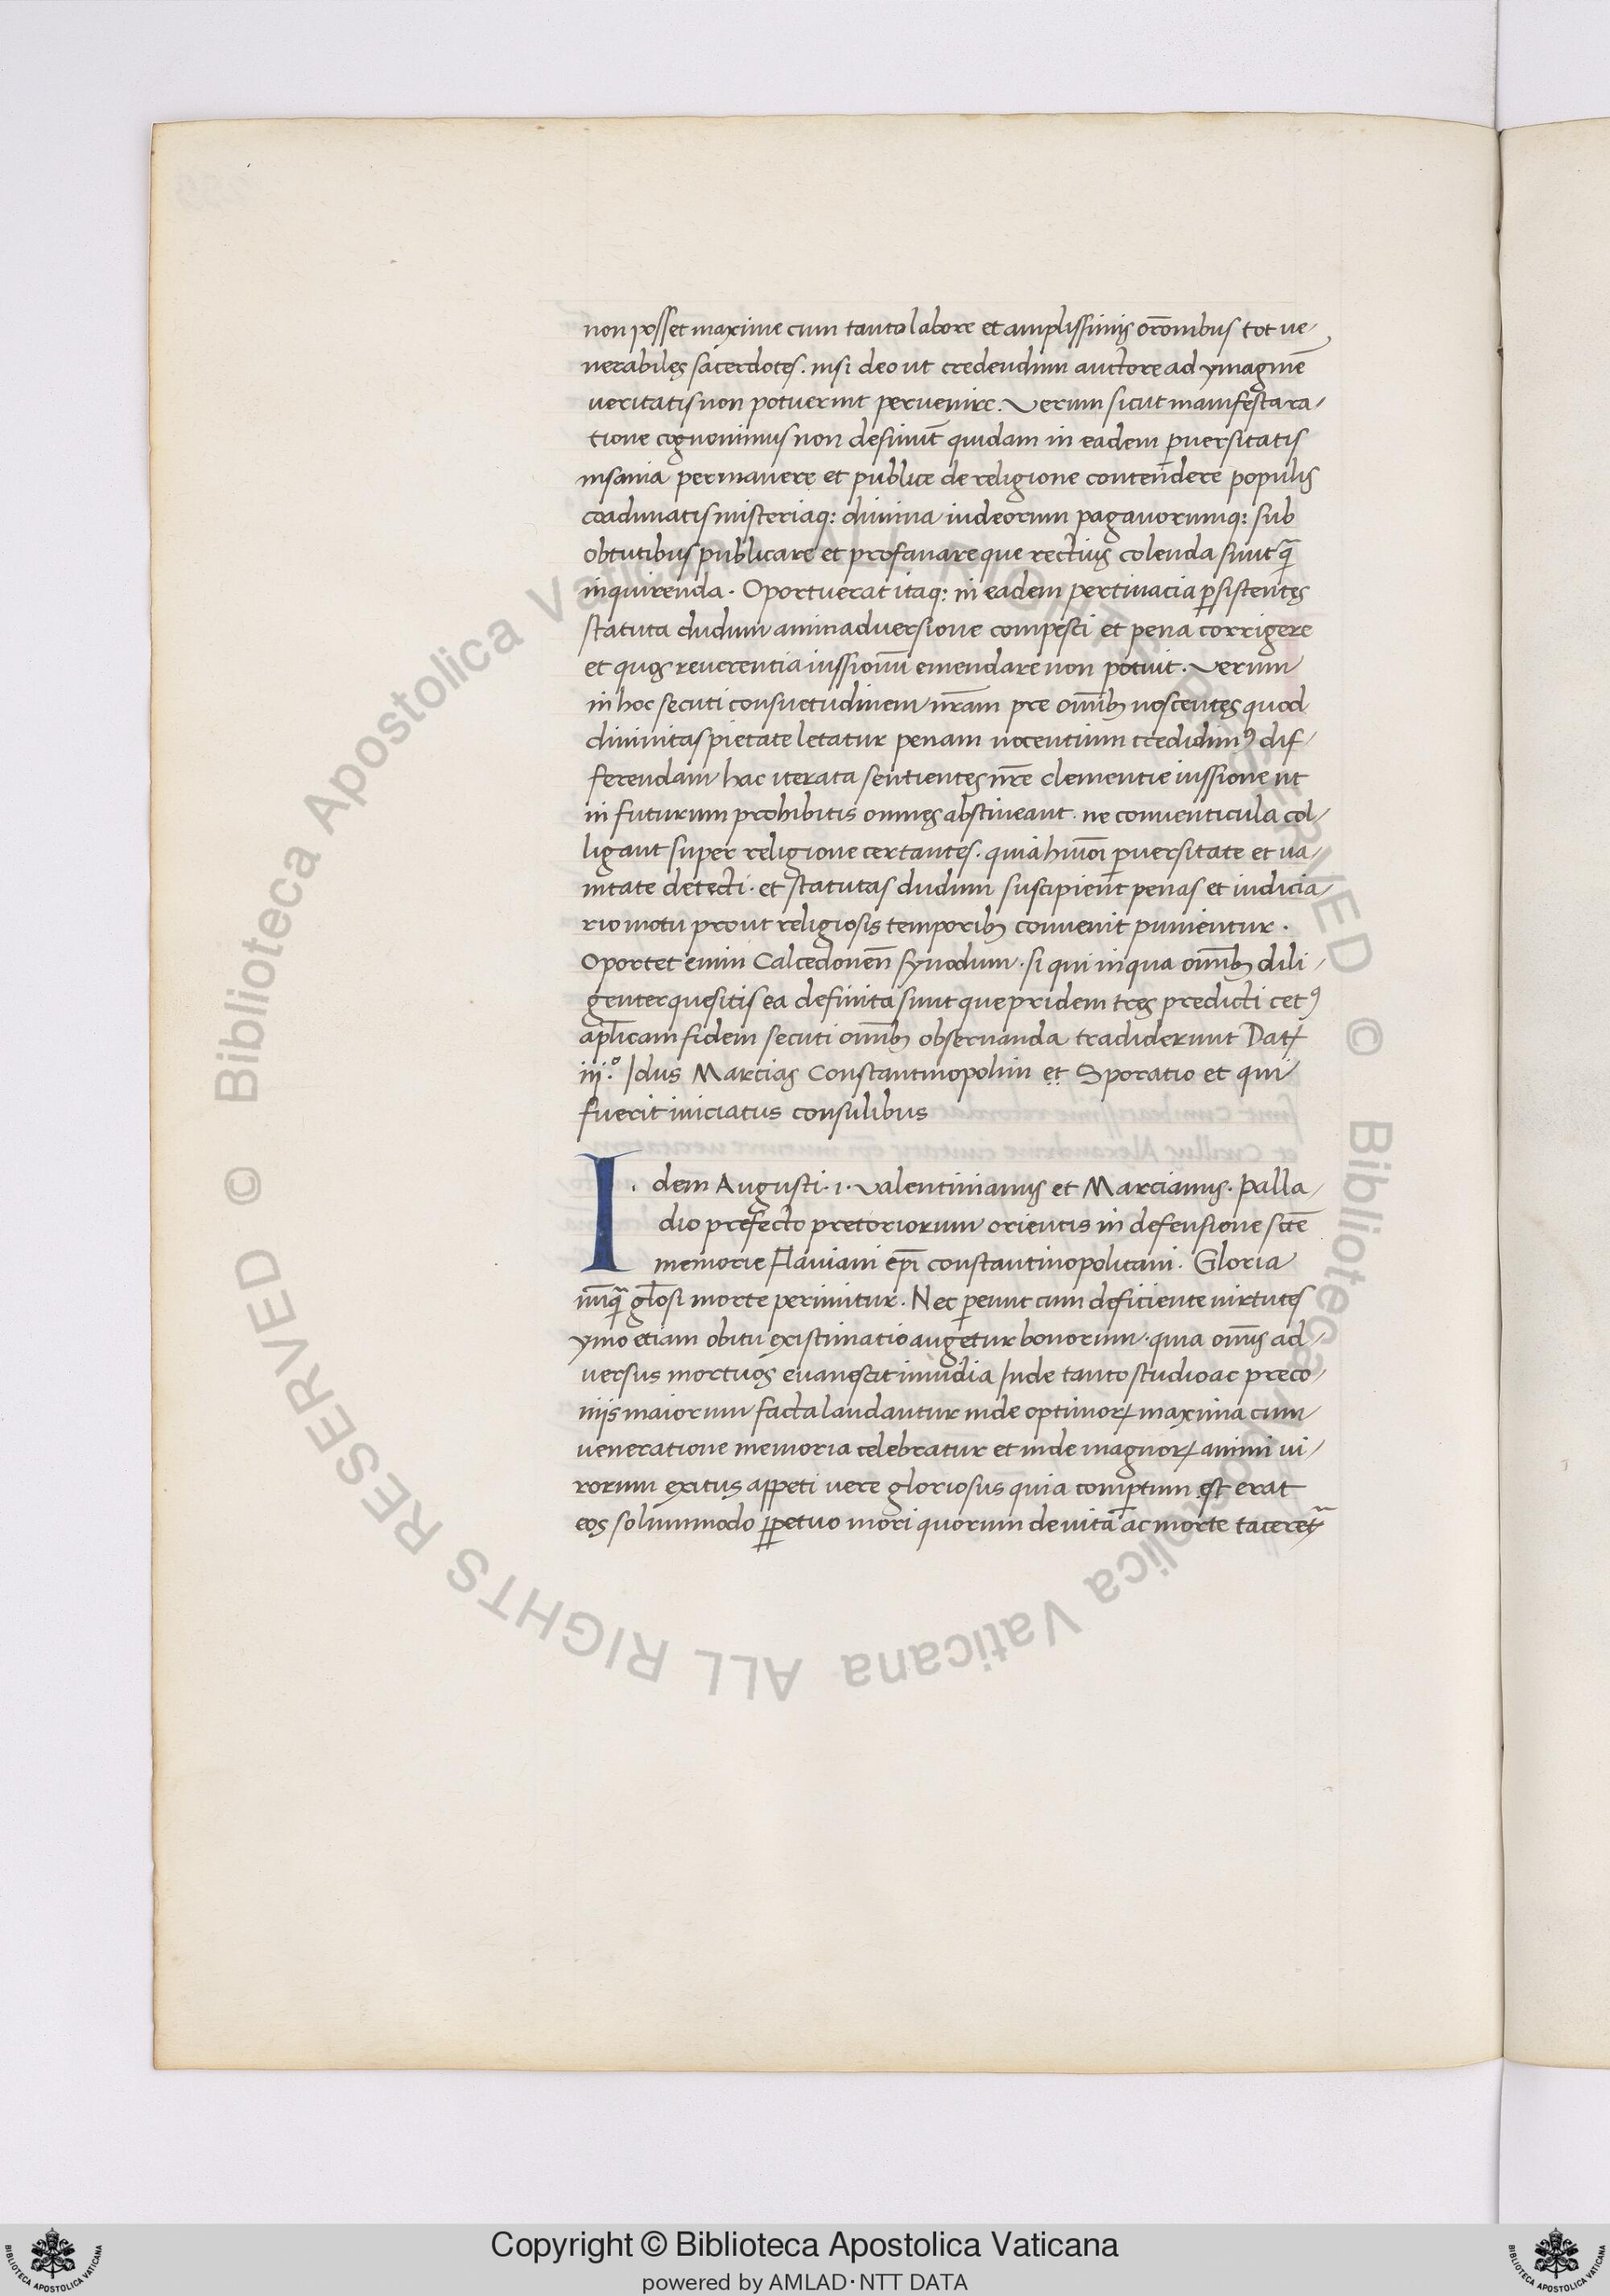 non posset maxime cum tanto labore et amplissimis orõnibus tot ue-
nerabiles sacerdotes. nisi deo ut credendum auctore ad ymaginẽ
veritatis non potuerint pervenire. Verum sicut manifesta ra-
tione cognouimus non desinũt quidam in eadem ꝑuersitatis
insania permanere et publice de religione contendere populis
coadunatis misteriaq: diuina iudeorum paganorumq: sub
obtutibus publicare et profanare que rectius colenda sunt q̃
inquirenda. Oportuerat itaq: in eadem pertinacia ꝑsistentes
statuta dudum animaduersione compesci et pena corrigere
et quos reuerentia iussionũ emendare non potuit. Verum
in hoc secuti consuetudinem nr̃am pre omĩbꝫ noscentes quod
diuinitas pietate letatur penam nocentium credidimꝰ dif-
ferendam hac iterata sentientes nr̃e clementie iussione ut
in futurum prohibitis omnes abstineant. ne conuenticula col-
ligant super religione certantes. quia huiõi ꝑuersitate et ua-
nitate detecti. et statutas dudum suscipient penas et iudicia-
rio motu prout religiosis temporibꝫ conuenit punientur.
Oportet enim Calcedoneñ synodum. si qui in qua omĩbꝫ dili-
genter quesitis ea definita sunt que pridem tres predicti cetꝰ
apl̃icam fidem secuti omĩbꝫ obseruanda tradiderunt Datꝝ
iij.º Idus Marcias Constantinopolim et Sporatio et qui
fuerit iniciatus consulibus
I. dem Augusti. i. Valentinianus et Marcianus. Palla-
dio prefecto pretoriorum orientis in defensione sctẽ
memorie Flauiani ep̃i constantinopolitani. Gloria
nũq̃ gl̃osi morte perimitur. Nec ꝑeunt cum deficiente uirtutes
ymo etiam obitu existimatio augetur bonorum. quia omĩs ad-
versus mortuos euanescit inuidia Inde tanto studio ac preco-
niis maiorum facta laudantur inde optimoꝝ maxima cum
ueneratione memoria celebratur et inde magnoꝝ animi ui-
rorum exitus appeti vere gloriosus quia comꝑtum est erat
eos solummodo ꝑpetuo mori quorum de uita ac morte taceret᷑
Copyright © Biblioteca Apostolica Vaticana
powered by AMLAD·NTT DATA
© Biblioteca Apostolica Vaticana ALL RIGHTS RESERVED
© Biblioteca Apostolica Vaticana ALL RIGHTS RESERVED
BIBLIOTECA APOSTOLICA VATICANA
BIBLIOTECA APOSTOLICA VATICANA